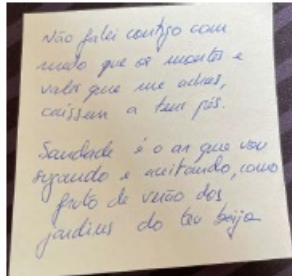 Não falei contigo com
medo que os montes e
vales que me achas,
caíssem a teus pés.
Saudade é o ar que vou
sugando e aceitando, como
fruto de verão dos
jardins do teu beijo